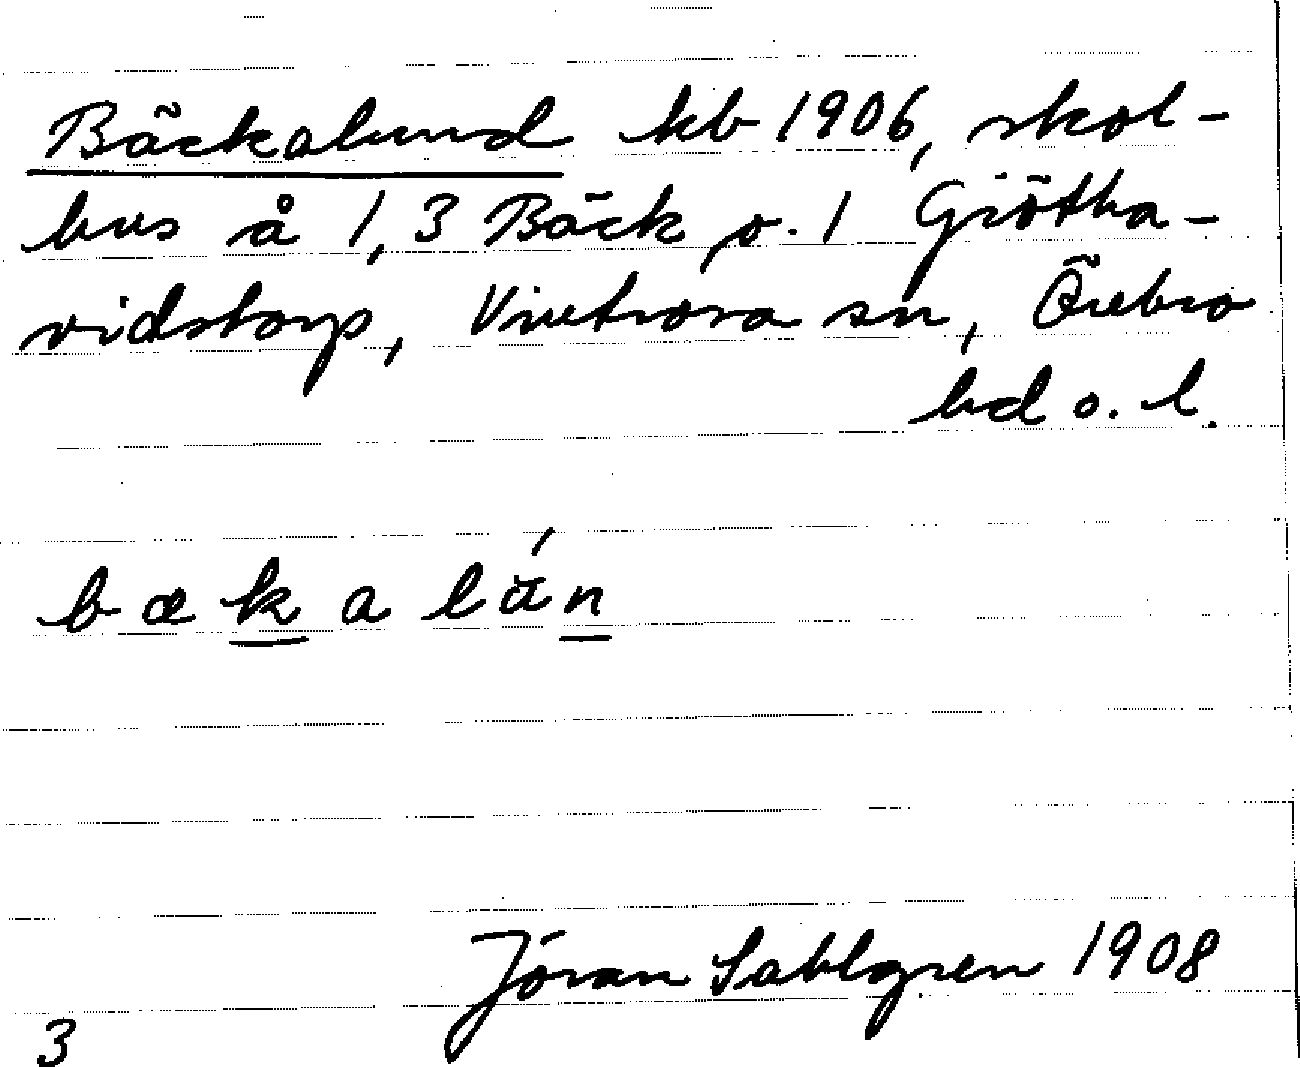 Bäckalund kb 1906, skol-
hus å 1,3 Bäck o. 1 Götha-
vidstorp, Vintrosa sn, Örebro
hd o. l.
bækalån
Jöran Sahlgren 1908
3